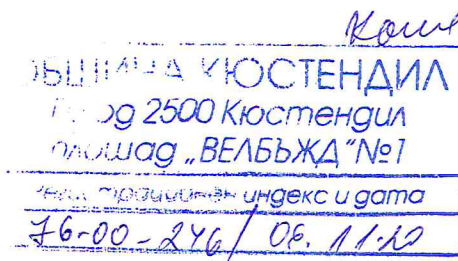 ОБЩИНА КЮСТЕНДИЛ
Град 2500 Кюстендил
площад „ВЕЛБЪЖД“ №1
Регистрационен индекс и дата
76-00-246/ 06.11.20